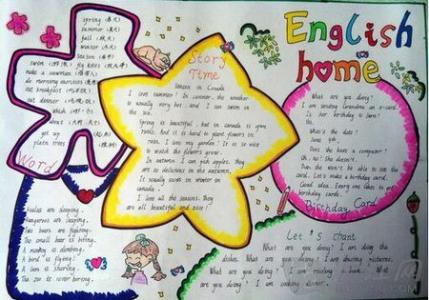 English
home
spring (春天)
summer (夏天)
fall (秋天)
winter (冬天)
season (季节)
swim
fly kites
make a snowman
eat breakfast
eat dinner
which
get up
plant trees
Word
Story
Time
Season in Canada
I love summer! In summer, the weather
is usually very hot, and I can swim in
the sea.
Spring is beautiful, but in Canada it gives
And it is hard to plant flowers in
I love my garden! It is so nice
to watch the flowers grow.
In autumn, I can pick apples, they
are so delicious in the autumn.
It usually snows in winter in
canada.
I love all the seasons, they
are all beautiful and nice!
What are you doing?
I am sending Grandma an e-card.
Is her birthday is here?
No.
What's the date?
June 9th.
Does she have a computer?
Oh, no! She doesn't.
Then she won't be able to use the
card. Let's make a birthday card.
Good idea. Every one likes to get
birthday cards.
Birthday Card
Koalas are sleeping.
Kangaroos are
Two bears are fighting.
The small bear is
A monkey is climbing.
A bird is flying!
A lion is
The zoo is never boring.
Let's chant
What are you doing? I am doing the
dishes. What are you doing? I am drawing pictures.
What are you doing? I am reading a book. What
are you doing? I am cooking dinner.